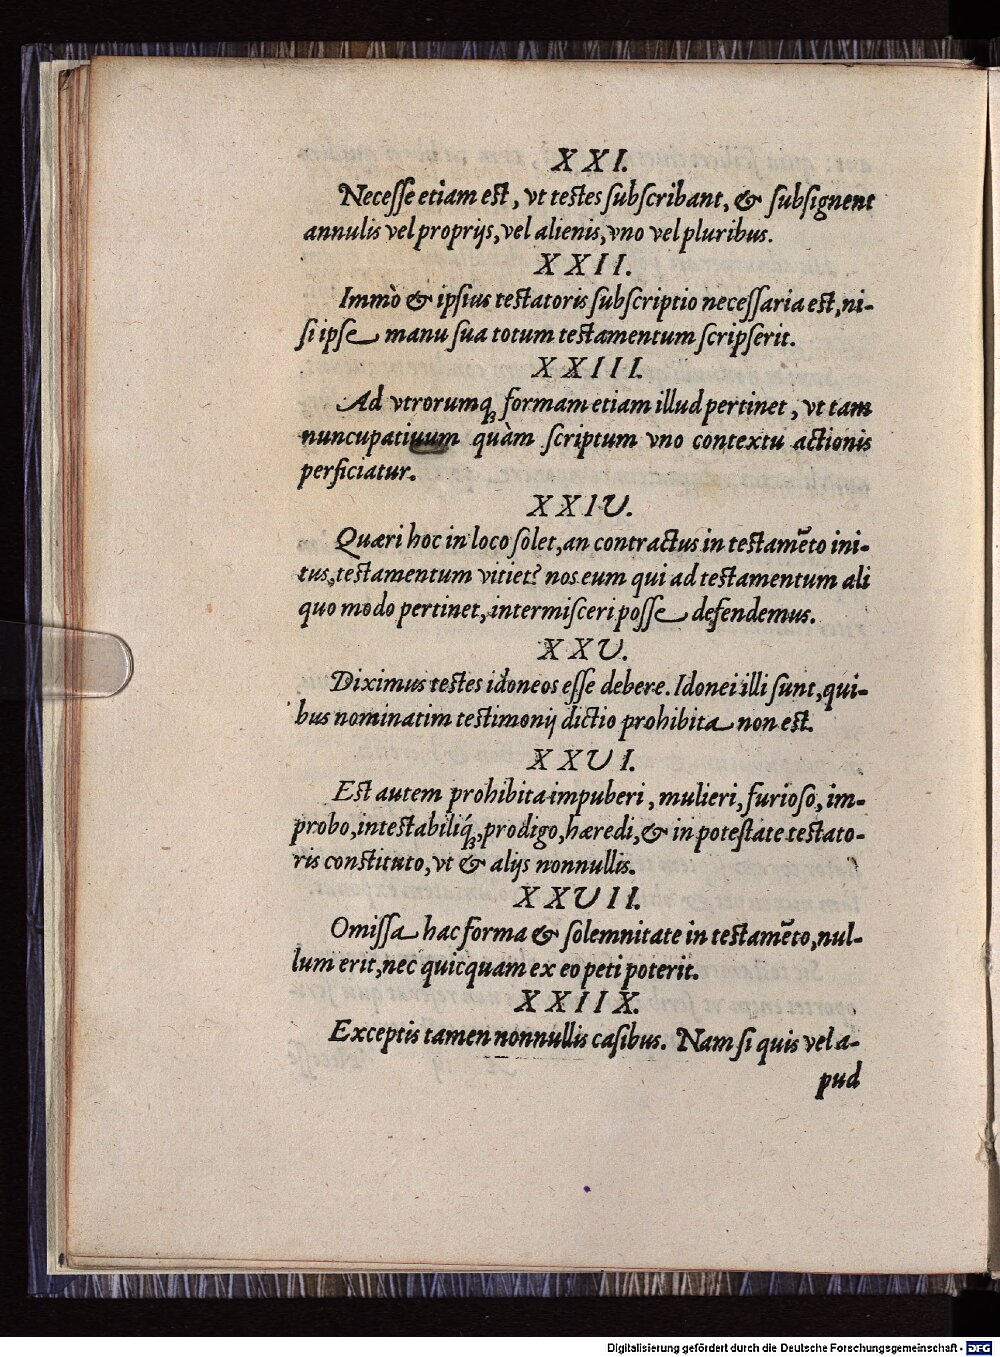 XXI.
Necesse etiam est, vt testes subscribant, & subsignent
annulis vel proprijs, vel alienis, vno vel pluribus.
XXII.
Immò & ipsius testatoris subscriptio necessaria est, ni-
si ipse manu sua totum testamentum scripserit.
XXIII.
Ad vtrorumq; formam etiam illud pertinet, vt tam
nuncupatiuum quàm scriptum vno contextu actionis
perficiatur.
XXIV.
Quæri hoc in loco solet, an contractus in testamẽto ini-
tus, testamentum vitiet? nos eum qui ad testamentum ali
quo modo pertinet, intermisceri posse defendemus.
XXV.
Diximus testes idoneos esse debere. Idonei illi sunt, qui-
bus nominatim testimonij dictio prohibita non est.
XXVI.
Est autem prohibita impuberi, mulieri, furioso, im-
probo, intestabiliq́;, prodigo, hæredi, & in potestate testato-
ris constituto, vt & alijs nonnullis.
XXVII.
Omissa hac forma & solemnitate in testamẽto, nul-
lum erit, nec quicquam ex eo peti poterit.
XXIIX.
Exceptis tamen nonnullis casibus. Nam si quis vel a-
pud
Digitalisierung gefördert durch die Deutsche Forschungsgemeinschaft - DFG